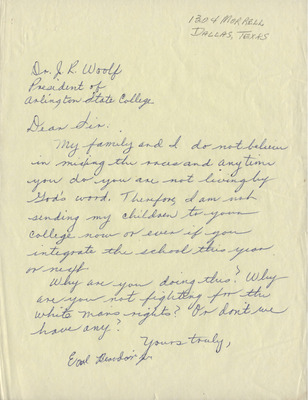 1304 MORRELL
DALLAS, TEXAS
Dr. J. R. Woolf
President of
Arlington State College
Dear Sir.
My family and I do not believe
in mixing the races and anytime
you do you are not living by
God's word. Therefore, I am not
sending my children to your
college now or ever if you
integrate the school this year
or next.
Why are you doing this? Why
are you not fighting for the
white mans rights? Or don't we
have any?
Yours truly,
Jr.